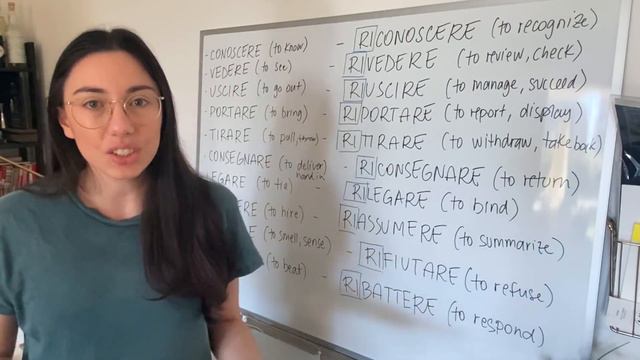 - CONOSCERE (to know) - RICONOSCERE (to recognize)
- VEDERE (to see) - RIVEDERE (to review, check)
USCIRE (to go out) - RIUSCIRE (to manage, succeed)
- PORTARE (to bring) - RIPORTARE (to report, display)
- TIRARE (to pull, throw) - RITIRARE (to withdraw, take back)
- CONSEGNARE (to deliver/ hand in) - RICONSEGNARE (to return)
LEGARE (to tie) - RILEGARE (to bind)
(to hire) - RIASSUMERE (to summarize)
(to smell, sense) - RIFIUTARE (to refuse)
(to beat) - RIBATTERE (to respond)